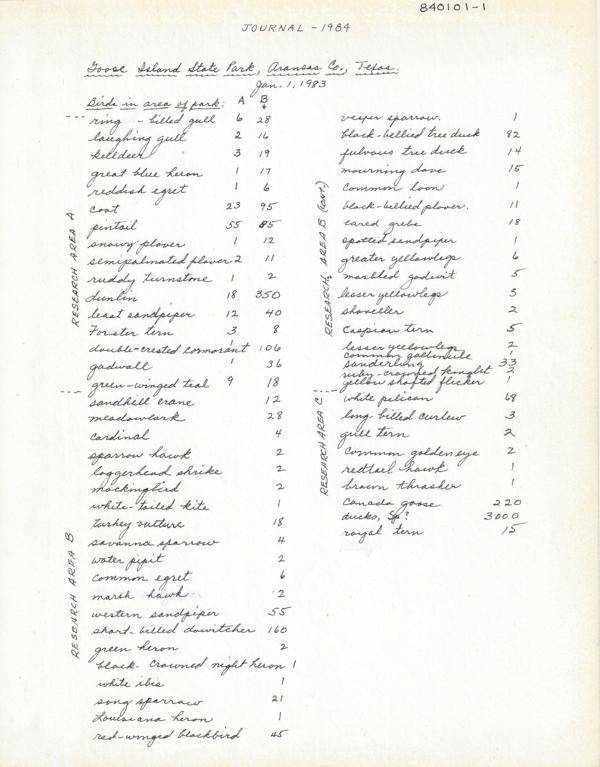 840101-1
JOURNAL - 1984
Goose Island State Park, Aransas Co., Texas.
Jan. 1, 1983
Birds in area of park: A B
RESEARCH AREA A
ring - billed gull 6 28
laughing gull 2 16
kelldeer 3 19
great blue heron 1 17
reddish egret 1 6
coot 23 95
pintail 55 85
snowy plover 1 12
semipalmated plover 2 11
ruddy turnstone 1 2
dunlin 18 350
least sandpiper 12 40
Forster tern 3 8
double-crested cormorant 1 106
gadwall 1 36
green-winged teal 9 18
RESEARCH AREA B
sandhill crane 12
meadowlark 28
cardinal 4
sparrow hawk 2
loggerhead shrike 2
mockingbird 2
white-tailed kite 1
turkey vulture 18
savanna sparrow 4
water pipit 2
common egret 6
marsh hawk 2
western sandpiper 55
short-billed dowitcher 160
green heron 2
black-crowned night heron 1
white ibis 1
song sparrow 21
Louisiana heron 1
red-winged blackbird 45
RESEARCH AREA B (cont.)
vesper sparrow. 1
black-bellied tree duck 82
fulvous tree duck 14
mourning dove 15
common loon 1
black-bellied plover. 11
eared grebe 18
spotted sandpiper 1
greater yellowlegs 6
marbled godwit 5
lesser yellowlegs 3
shoveller 2
Caspian tern 5
lesser yellowlegs 2
common gallinule 1
sanderling 33
ruby-crowned kinglet 2
yellow shafted flicker 1
RESEARCH AREA C
white pelican 68
long-billed curlew 3
gull tern 2
common goldeneye 2
redtail hawk 1
brown thrasher 1
Canada goose 220
ducks, Sp? 3000
royal tern 15